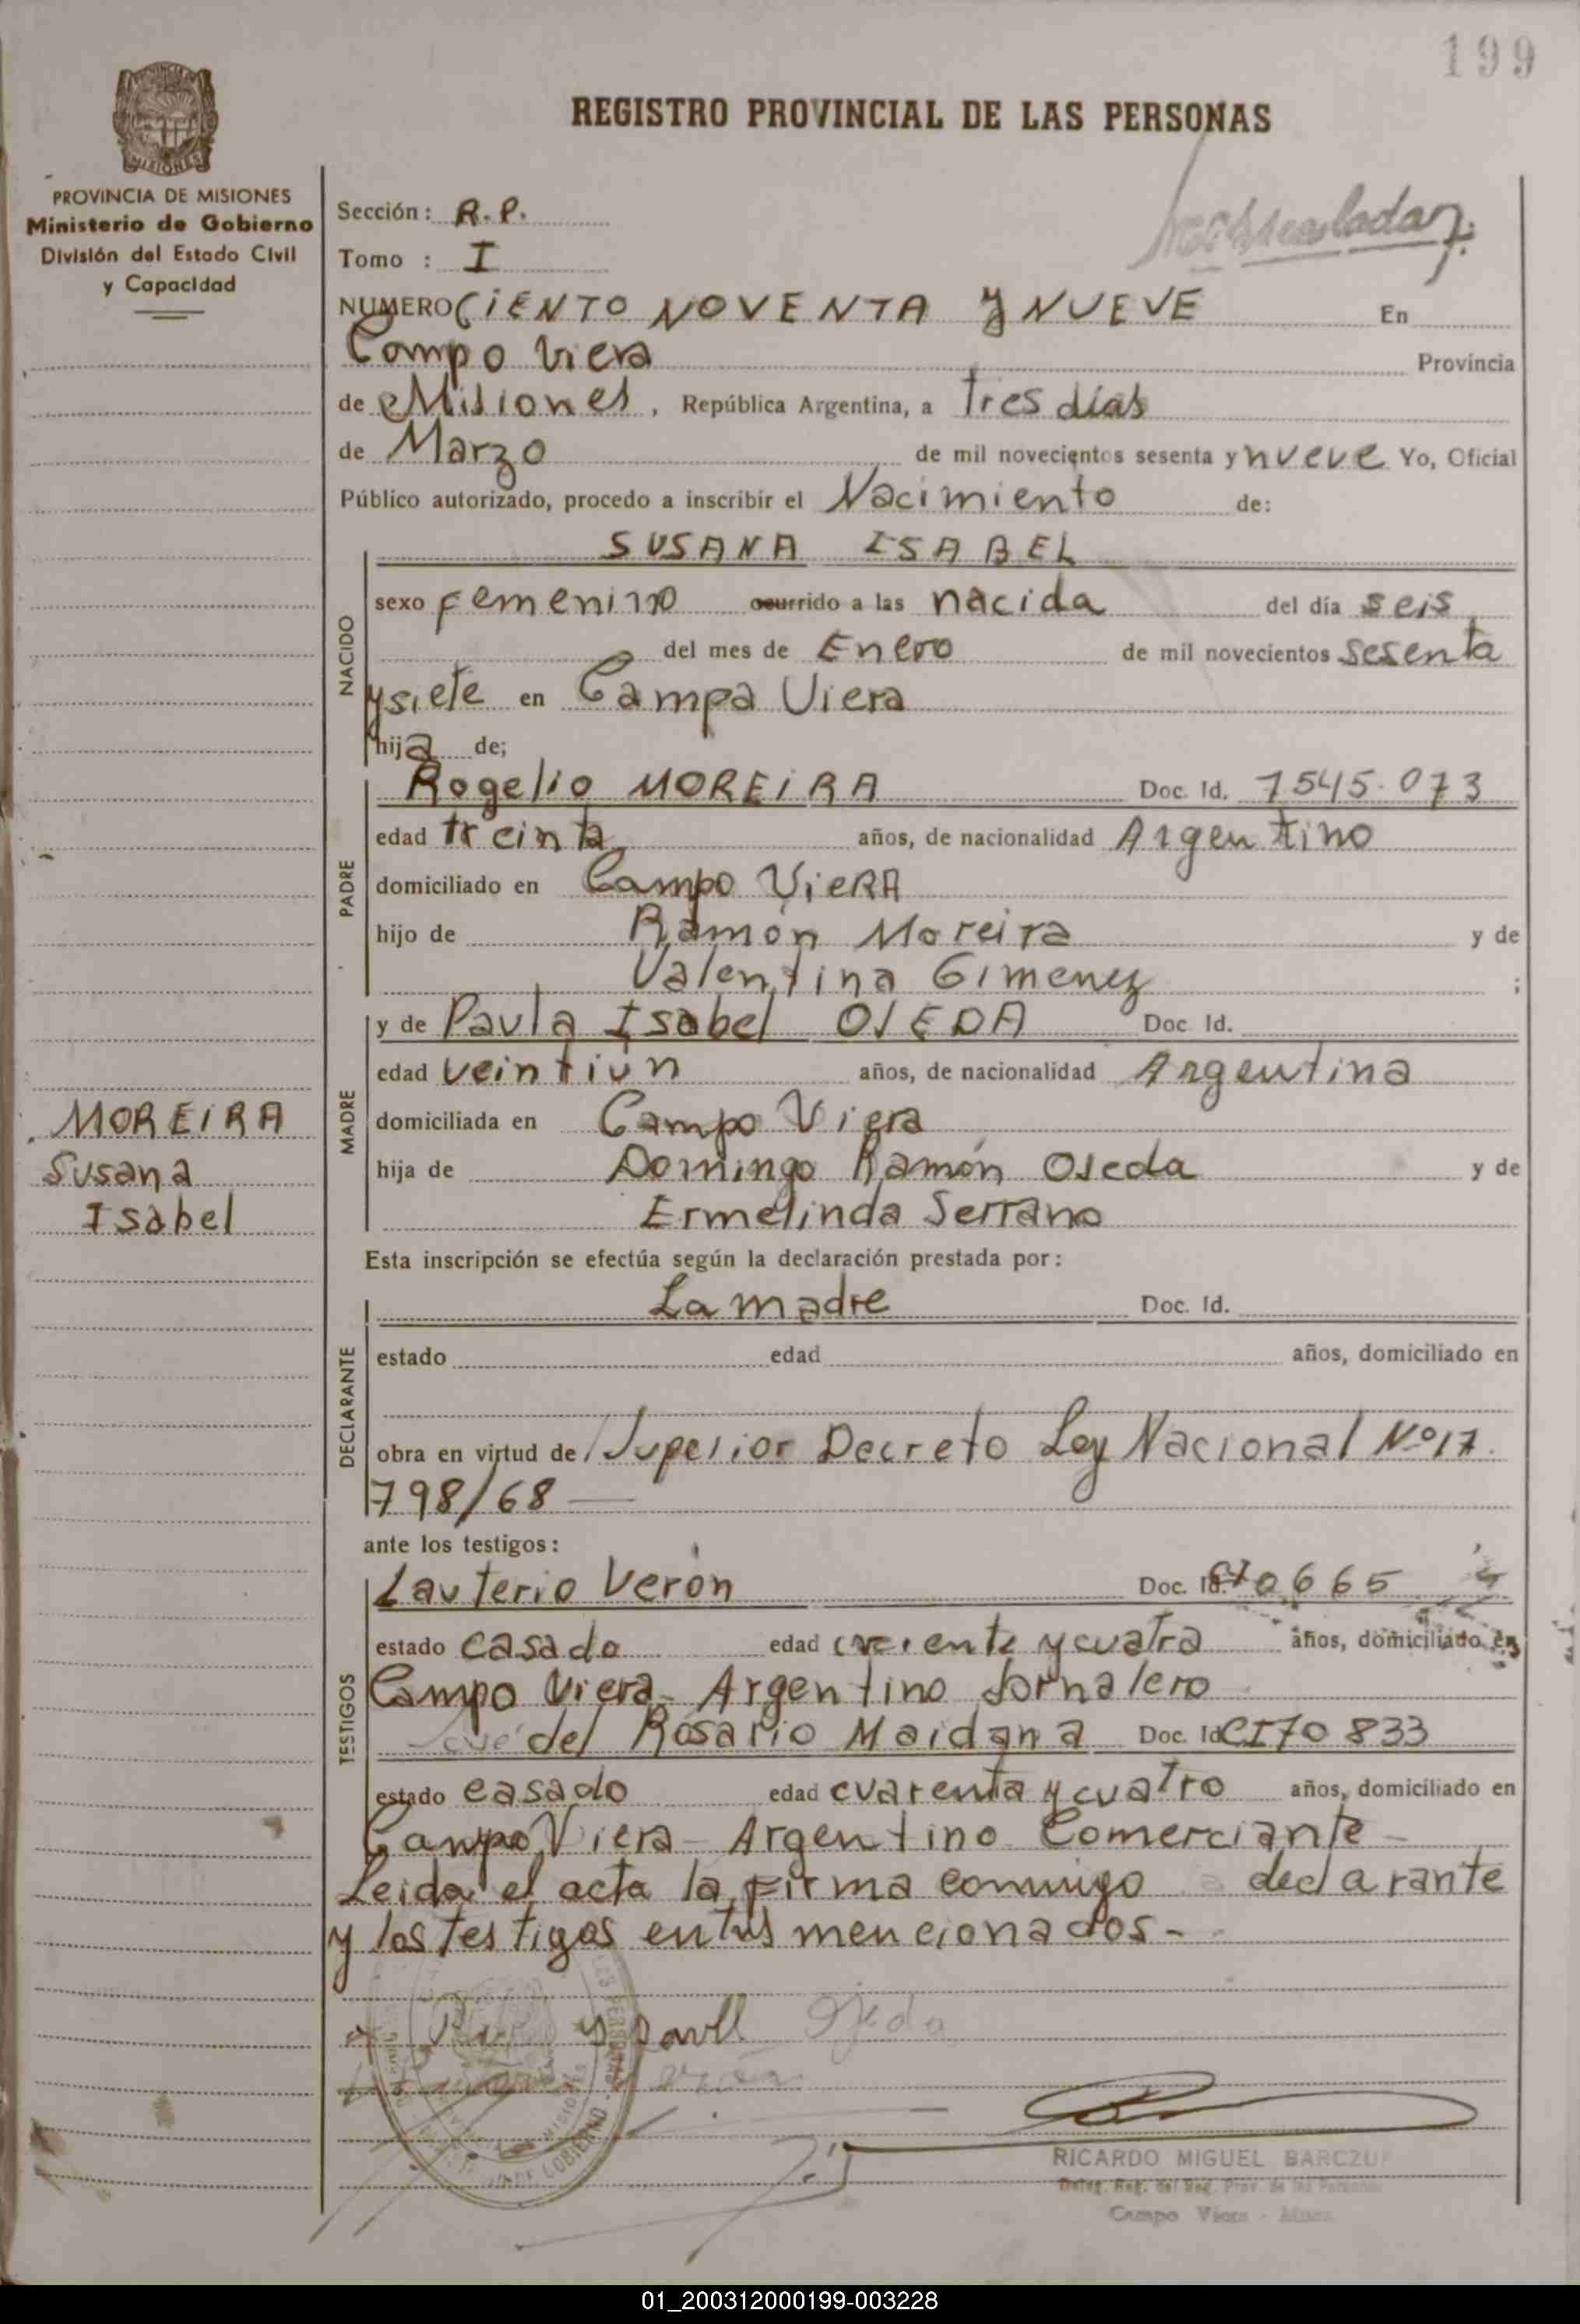 199
REGISTRO PROVINCIAL DE LAS PERSONAS
PROVINCIA DE MISIONES
Ministerio de Gobierno
División del Estado Civil
y Capacidad
Sección: R.P.
Tomo : I
NUMERO CIENTO NOVENTA y NUEVE En
Campo Viera Provincia
de Misiones, República Argentina, a tres días
de Marzo de mil novecientos sesenta y nueve Yo, Oficial
Público autorizado, procedo a inscribir el Nacimiento de:
NACIDO
SUSANA ISABEL
sexo Femenino ocurrido a las nacida del día seis
del mes de Enero de mil novecientos sesenta
y siete en Campa Viera
hija de;
PADRE
Rogelio MOREIRA Doc. Id. 7545.073
edad treinta años, de nacionalidad Argentino
domiciliado en Campo VieRA
hijo de Ramón Moreira y de
Valentina Gimenez ;
MADRE
y de Paula Isabel OJEDA Doc Id.
edad veintiún años, de nacionalidad Argentina
domiciliada en Campo Viera
hija de Domingo Ramón Ojeda y de
Ermelinda Serrano
MOREIRA
Susana
Isabel
Esta inscripción se efectúa según la declaración prestada por:
DECLARANTE
La madre Doc. Id.
estado edad años, domiciliado en
obra en virtud de Superior Decreto Ley Nacional Nº 17.
798/68
ante los testigos:
TESTIGOS
Lauterio Verón Doc. Id. 0665
estado casado edad y cuatro años, domiciliado en
Campo Viera - Argentino Jornalero
José del Rosario Maidana Doc. Id CI70833
estado casado edad cuarenta y cuatro años, domiciliado en
Campo Viera - Argentino Comerciante -
Leida el acta la firma conmigo declarante
y los testigos mencionados -
Ojeda
RICARDO MIGUEL BARCZUK
Deleg. Reg. del Reg. Prov. de las Personas
Campo Viera - Mnes.
01_200312000199-003228